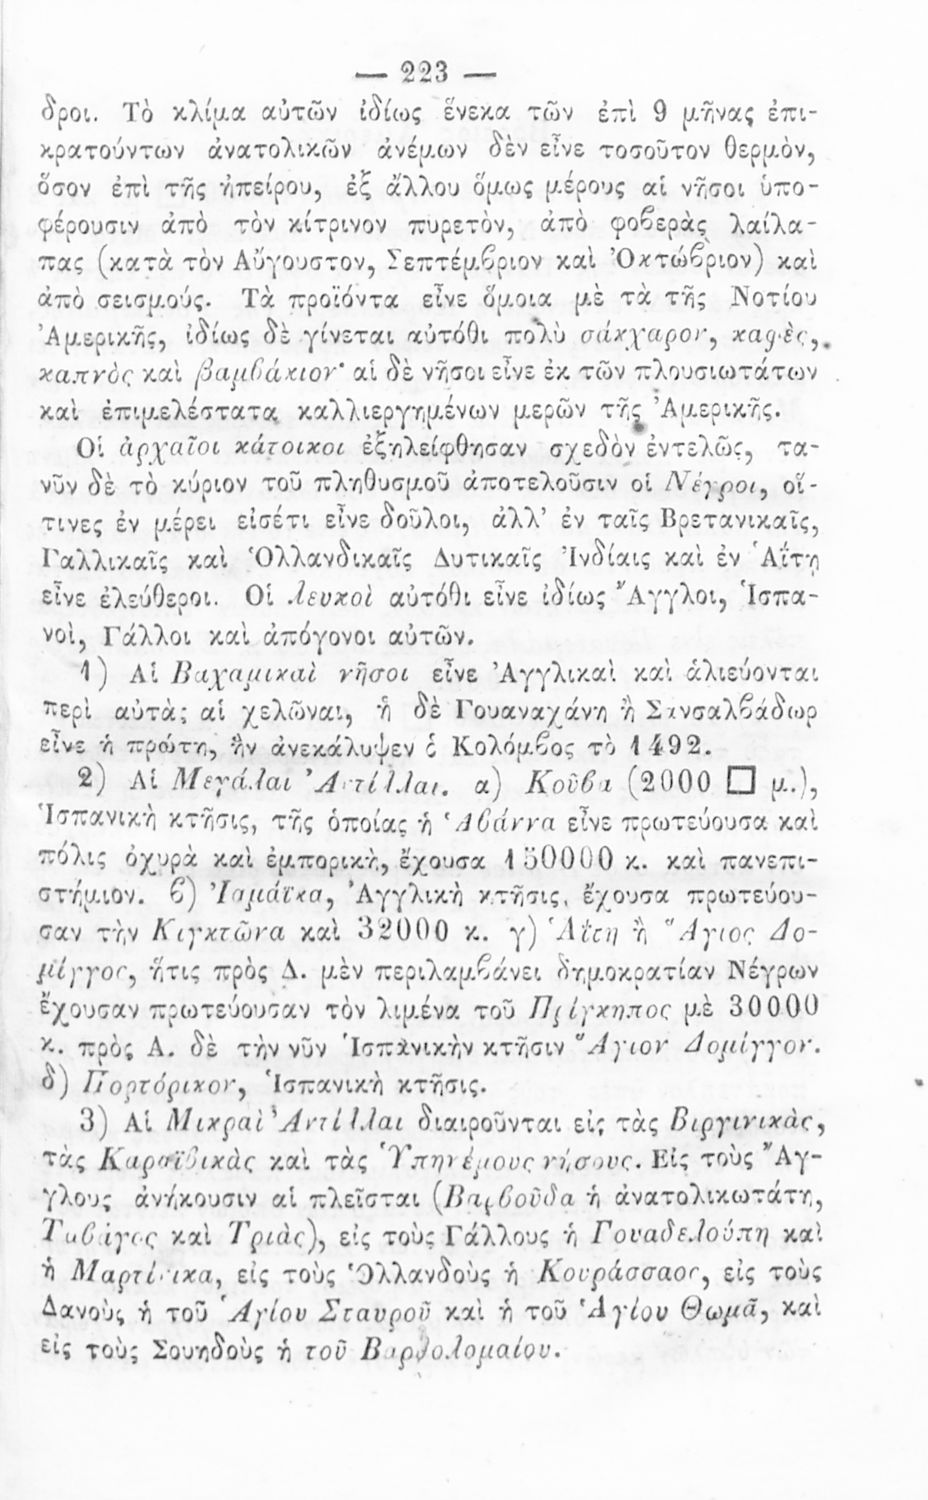 — 223 —
δροι. Τὸ κλίμα αὐτῶν ἰδίως ἕνεκα τῶν ἐπὶ 9 μῆνας ἐπι-
κρατούντων ἀνατολικῶν ἀνέμων δὲν εἶνε τοσοῦτον θερμὸν,
ὅσον ἐπὶ τῆς ἠπείρου, ἐξ ἄλλου ὅμως μέρους αἱ νῆσοι ὑπο-
φέρουσιν ἀπὸ τὸν κίτρινον πυρετὸν, ἀπὸ φοβερὰς λαίλα-
πας (κατὰ τὸν Αὔγουστον, Σεπτέμβριον καὶ Ὀκτώβριον) καὶ
ἀπὸ σεισμούς. Τὰ προϊόντα εἶνε ὅμοια μὲ τὰ τῆς Νοτίου
Ἀμερικῆς, ἰδίως δὲ γίνεται αὐτόθι πολὺ σάκχαρον, καφὲς,
καπνὸς καὶ βαμβάκιον· αἱ δὲ νῆσοι εἶνε ἐκ τῶν πλουσιωτάτων
καὶ ἐπιμελέστατα καλλιεργημένων μερῶν τῆς Ἀμερικῆς.
Οἱ ἀρχαῖοι κάτοικοι ἐξηλείφθησαν σχεδὸν ἐντελῶς, τα-
νῦν δὲ τὸ κύριον τοῦ πληθυσμοῦ ἀποτελοῦσιν οἱ Νέγροι, οἵ-
τινες ἐν μέρει εἰσέτι εἶνε δοῦλοι, ἀλλ’ ἐν ταῖς Βρετανικαῖς,
Γαλλικαῖς καὶ Ὁλλανδικαῖς Δυτικαῖς Ἰνδίαις καὶ ἐν Ἁΐτῃ
εἶνε ἐλεύθεροι. Οἱ λευκοὶ αὐτόθι εἶνε ἰδίως Ἄγγλοι, Ἱσπα-
νοὶ, Γάλλοι καὶ ἀπόγονοι αὐτῶν.
1) Αἱ Βαχαμικαὶ νῆσοι εἶνε Ἀγγλικαὶ καὶ ἁλιεύονται
περὶ αὐτὰς αἱ χελῶναι, ἡ δὲ Γουαναχάνη ἢ Σανσαλβάδωρ
εἶνε ἡ πρώτη, ἣν ἀνεκάλυψεν ὁ Κολόμβος τὸ 1492.
2) Αἱ Μεγάλαι Ἀντίλλαι. α) Κοῦβα (2000 □ μ.),
Ἱσπανικὴ κτῆσις, τῆς ὁποίας ἡ Ἁβάννα εἶνε πρωτεύουσα καὶ
πόλις ὀχυρὰ καὶ ἐμπορικὴ, ἔχουσα 150000 κ. καὶ πανεπι-
στήμιον. β) Ἰαμάϊκα, Ἀγγλικὴ κτῆσις, ἔχουσα πρωτεύου-
σαν τὴν Κιγκτῶνα καὶ 32000 κ. γ) Ἁΐτη ἢ Ἅγιος Δο-
μίγγος, ἥτις πρὸς Δ. μὲν περιλαμβάνει δημοκρατίαν Νέγρων
ἔχουσαν πρωτεύουσαν τὸν λιμένα τοῦ Πρίγκηπος μὲ 30000
κ. πρὸς Α. δὲ τὴν νῦν Ἱσπανικὴν κτῆσιν Ἅγιον Δομίγγον.
δ) Πορτόρικον, Ἱσπανικὴ κτῆσις.
3) Αἱ Μικραὶ Ἀντίλλαι διαιροῦνται εἰς τὰς Βιργινικὰς,
τὰς Καραϊβικὰς καὶ τὰς Ὑπηνέμους νήσους. Εἰς τοὺς Ἄγ-
γλους ἀνήκουσιν αἱ πλεῖσται (Βαρβοῦδα ἡ ἀνατολικωτάτη,
Ταβάγος καὶ Τριὰς), εἰς τοὺς Γάλλους ἡ Γουαδελούπη καὶ
ἡ Μαρτίνικα, εἰς τοὺς Ὁλλανδοὺς ἡ Κουράσσαος, εἰς τοὺς
Δανοὺς ἡ τοῦ Ἁγίου Σταυροῦ καὶ ἡ τοῦ Ἁγίου Θωμᾶ, καὶ
εἰς τοὺς Σουηδοὺς ἡ τοῦ Βαρθολομαίου.